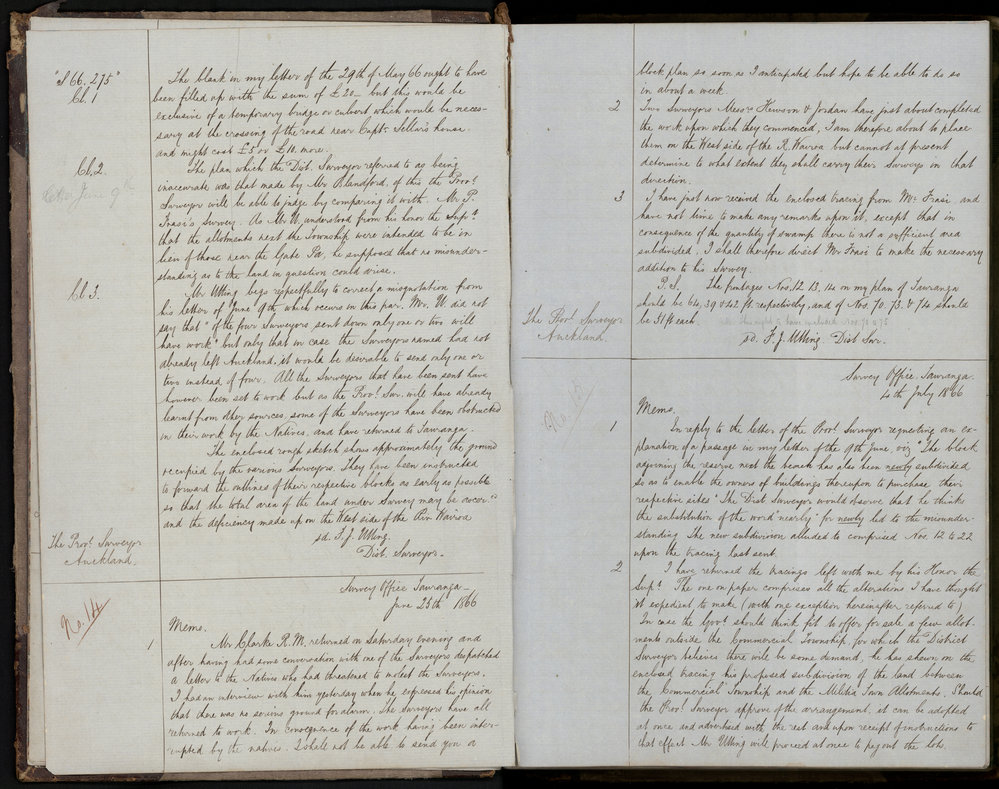 "S 66. 275"
Cl. 1
The blank in my letter of the 29th of May 66 ought to have
been filled up with the sum of £20_ but this would be
exclusive of a temporary bridge or culvert which would be neces-
sary at the crossing of the road near Captn. Sellar's house
and might cost £5 or £10 more.
Cl. 2.
The plan which the Dist. Surveyor referred to as being
inaccurate was that made by Mr Blandford, of this the Provl.
Surveyor will be able to judge by comparing it with Mr P.
Frasi's Survey. As Mr U. understood from his honor the Supt.
that the allotments next the Township were intended to be in
lieu of those near the Gate Pa, he supposed that no misunder-
standing as to the land in question could arise.
Cl 3.
Mr Utting begs respectfully to correct a misquotation from
his letter of June 9th which occurs in this par. Mr. U. did not
say that "of the four Surveyors sent down only one or two will
have work" but only that in case the Surveyors named had not
already left Auckland, it would be desirable to send only one or
two instead of four. All the Surveyors that have been sent have
however been set to work but as the Provl. Sur. will have already
learnt from other sources, some of the Surveyors have been obstructed
in their work by the Natives, and have returned to Tauranga.
The enclosed rough sketch shows approximately the ground
occupied by the various Surveyors. They have been instructed
to forward the outlines of their respective blocks as early as possible
so that the total area of the land under Survey may be
and the deficiency made up on the West side of the Riv Wairoa
sd. F. J. Utting.
Dist. Surveyor.
The Provl. Surveyor
Auckland.
Survey Office Tauranga
June 25th 1866
No. 14
Memo.
1 Mr Clarke R.M. returned on Saturday evening and
after having had some conversation with one of the Surveyors despatched
a letter to the Natives who had threatened to molest the Surveyors.
I had an interview with him yesterday when he expressed his opinion
that there was no serious ground for alarm. The Surveyors have all
returned to work. In consequence of the work having been inter-
rupted by the natives I shall not be able to send you a
block plan so soon as I anticipated but hope to be able to do so
in about a week.
2 Two Surveyors Messrs Hewson & Jordan have just about completed
the work upon which they commenced, I am therefore about to place
them on the West side of the R. Wairoa but cannot at present
determine to what extent they shall carry their Surveys in that
direction.
3 I have just now received the enclosed tracing from Mr. Frasi and
have not time to make any remarks upon it, except that in
consequence of the quantity of swamp there is not a sufficient area
subdivided. I shall therefore direct Mr Frasi to make the necessary
addition to his Survey.
P.S. The frontages Nos. 12. 13. 14 on my plan of Tauranga
should be 64, 39 & 42 ft. respectively, and of Nos. 70. 73. & 74 should
be 31 ft each.
The Provl. Surveyor
Auckland.
sd. F. J. Utting Dist Sur.
Survey Office, Tauranga.
4th July 1866
No. 15
Memo.
1 In reply to the letter of the Provl. Surveyor requesting an ex-
planation of a passage in my letter of the 9th June, viz "The block
adjoining the reserve next the beach has also been newly subdivided
so as to enable the owners of buildings thereupon to purchase their
respective sites" The Dist Surveyor would observe that he thinks
the substitution of the word "nearly" for newly led to the misunder-
standing. The new subdivision alluded to comprised Nos. 12 to 22
upon the tracing last sent.
2 I have returned the tracings left with me by his Honor the
Supt. The one on paper comprises all the alterations I have thought
it expedient to make (with one exception hereinafter referred to)
In case the Govt. should think fit to offer for sale a few allot-
ments outside the Commercial Township, for which the District
Surveyor believes there will be some demand, he has shewn on the
enclosed tracing his proposed subdivision of the land between
the Commercial Township and the Militia Town Allotments. Should
the Provl. Surveyor approve of the arrangement, it can be adopted
at once and advertised with the rest and upon receipt of instructions to
that effect Mr Utting will proceed at once to peg out the lots.